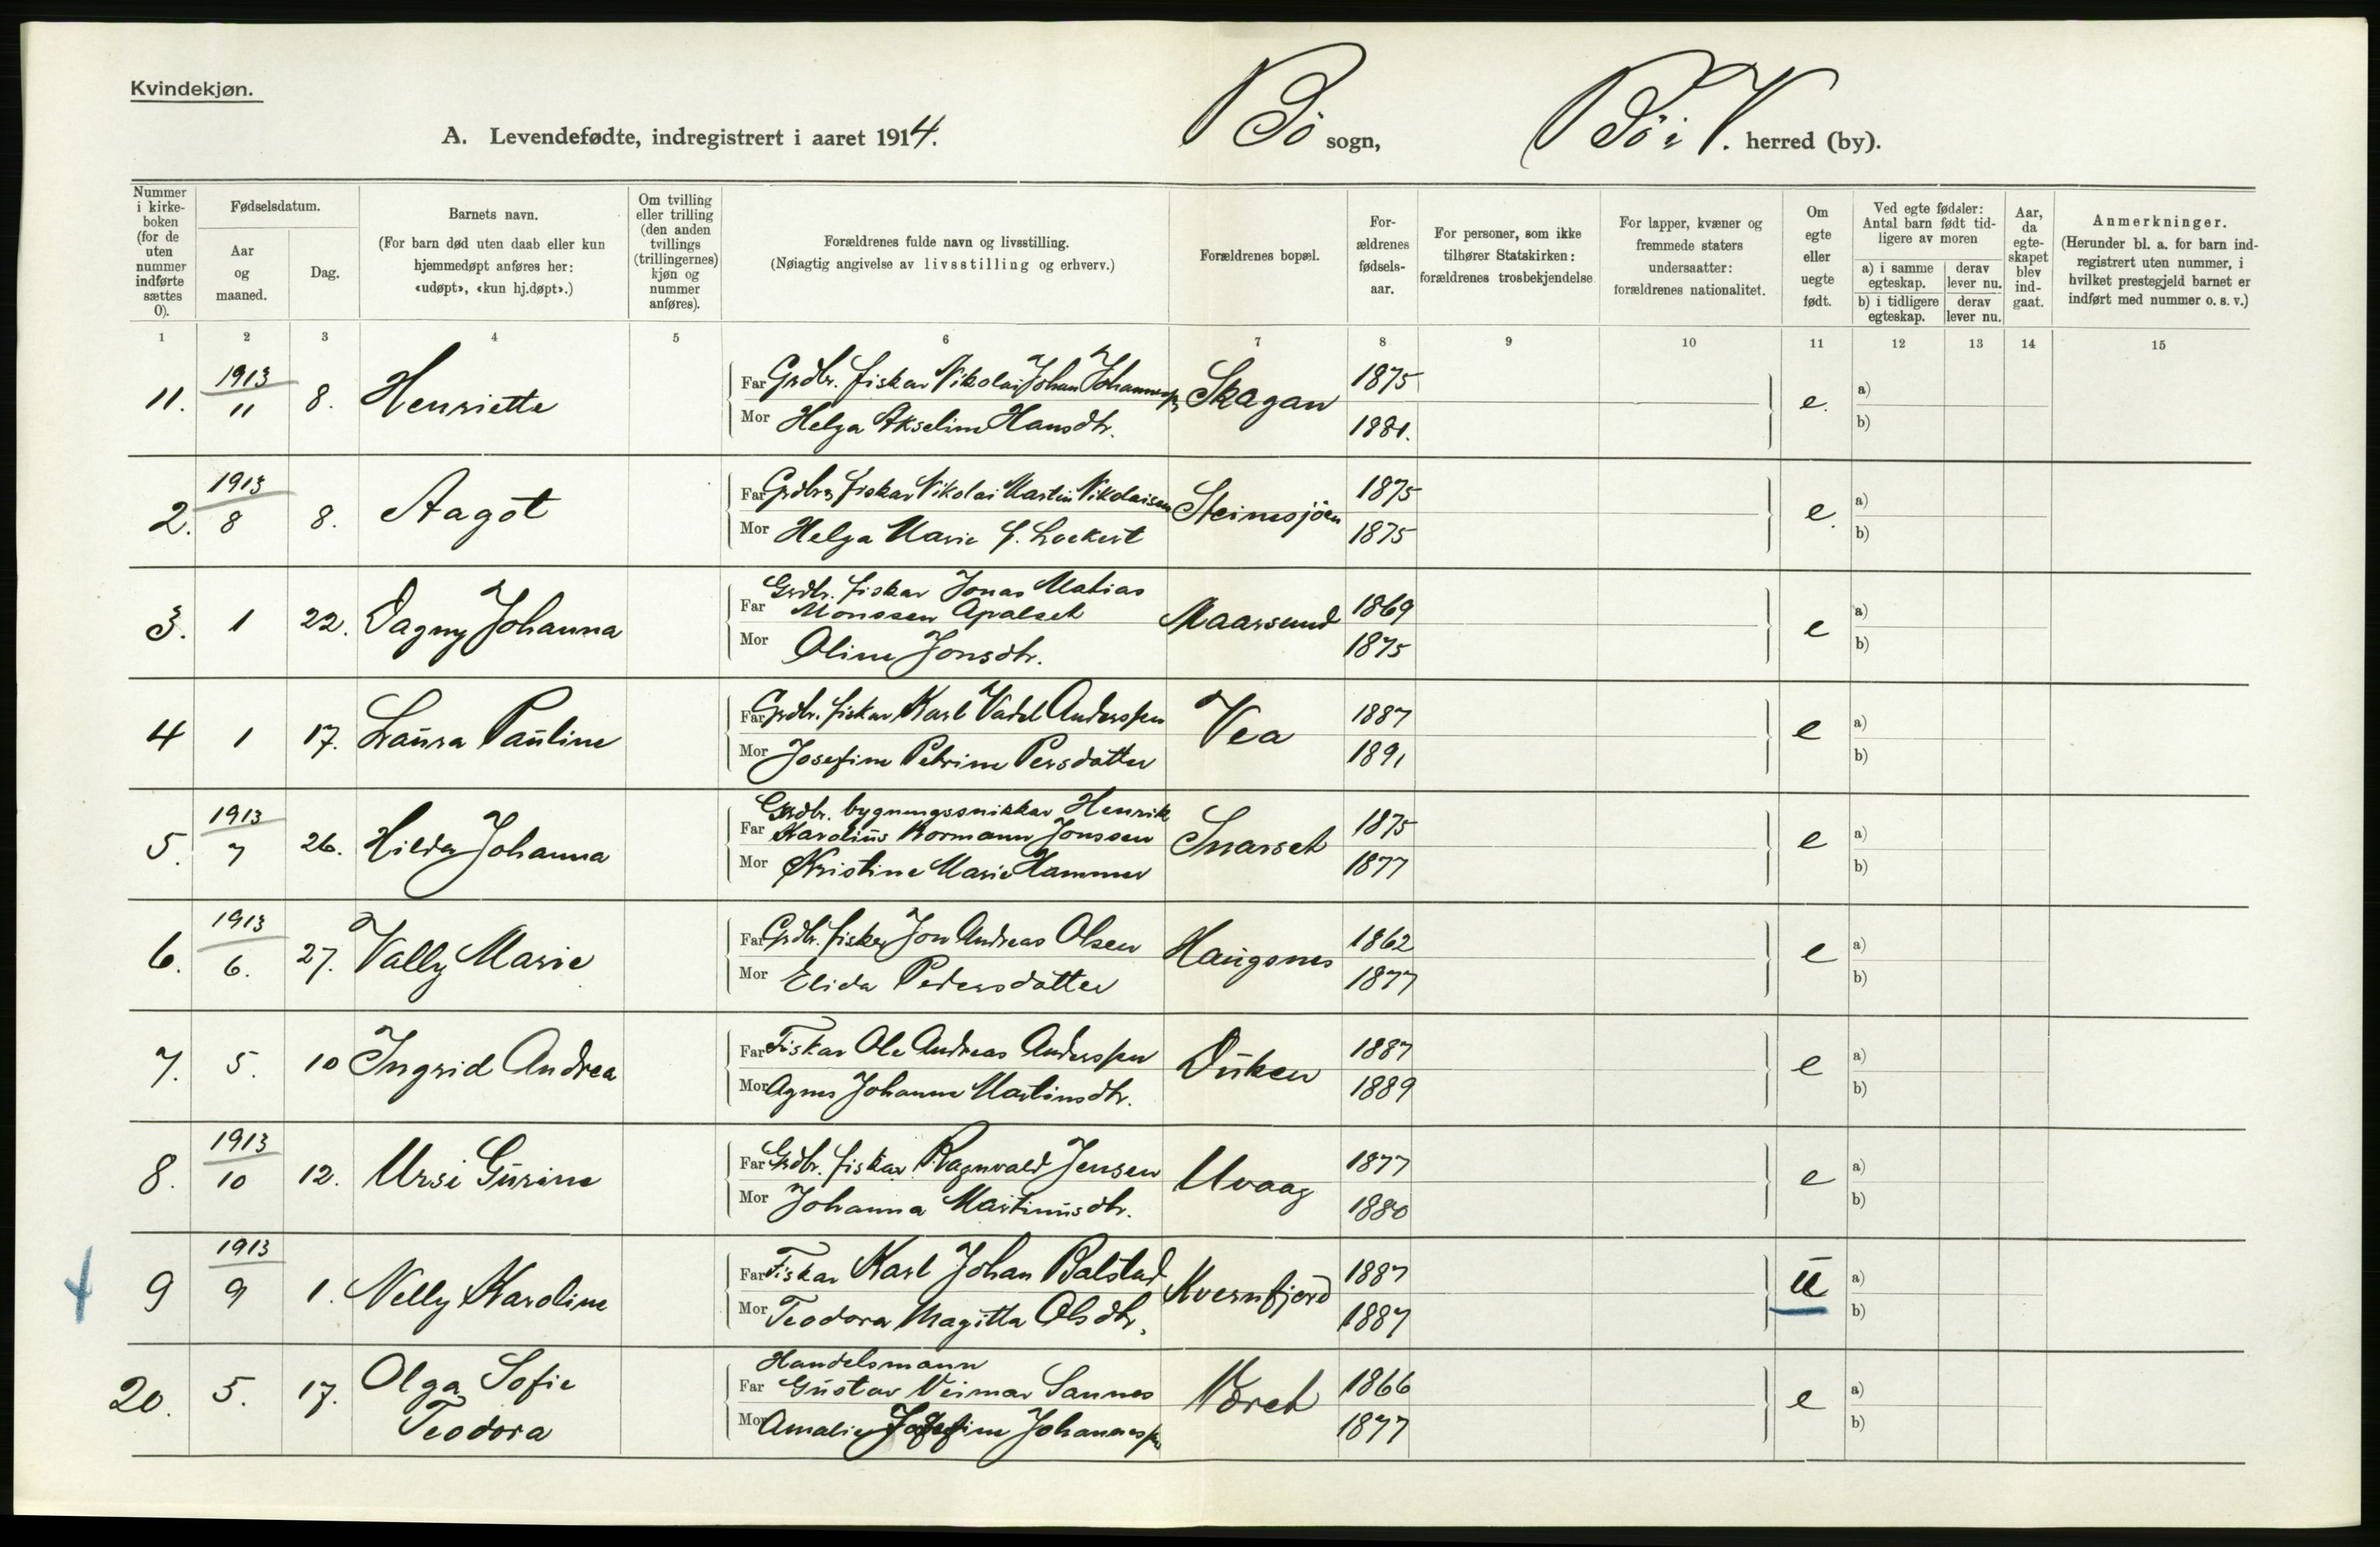 Kvindekjøn.
A. Levendefødte, indregistrert i aaret 1914.
Bö sogn,
Bö i V. herred (by).
Nummer i kirke-boken (for de uten nummer indførte sættes 0).
Fødselsdatum.
Aar og maaned.
Dag.
Barnets navn.
(For barn død uten daab eller kun hjemmedøpt anføres her: «udøpt», «kun hj.døpt».)
Om tvilling eller trilling (den anden tvillings (trillingernes) kjøn og nummer anføres).
Forældrenes fulde navn og livsstilling.
(Nøiagtig angivelse av livsstilling og erhverv.)
Forældrenes bopæl.
For-ældrenes fødsels-aar.
For personer, som ikke tilhører Statskirken: forældrenes trosbekjendelse
For lapper, kvæner og fremmede staters undersaatter: forældrenes nationalitet.
Om egte eller uegte født.
Ved egte fødsler: Antal barn født tid-ligere av moren
a) i samme egteskap.
derav lever nu.
b) i tidligere egteskap.
derav lever nu.
Aar, da egte-skapet blev ind-gaat.
Anmerkninger.
(Herunder bl. a. for barn ind-registrert uten nummer, i hvilket prestegjeld barnet er indført med nummer o. s. v.)
1 2 3 4 5 6 7 8 9 10 11 12 13 14 15
11. 1913 11 8. Henriette Far Grdbr. fisker Nikolai Johan Johannessen Skagan 1875 e. a)
Mor Helga Akseline Hansdtr. 1881. b)
2. 1913 8 8. Aagot Far Grdbr. fisker Nikolai Martin Nikolaisen Steinesjöen 1875 e. a)
Mor Helga Marie J. Lockert 1875 b)
3. 1 22. Dagny Johanna Far Grdbr. fisker Jonas Matias
Monssen Apalset Maarsund 1869 e a)
Mor Oline Jonsdtr. 1875 b)
4 1 17. Laura Pauline Far Grdbr. fisker Karl Vadel Anderssen Vea 1887 e a)
Mor Josefine Petrine Persdatter 1891 b)
5. 1913 7 26. Hilda Johanna Far Grdbr. bygningssnikker Henrik
Karolius Normann Jonssen Snarset 1875 e a)
Mor Kristine Marie Hammer 1877 b)
6. 1913 6. 27. Vally Marie Far Grdbr. fisker Jon Andreas Olsen Haugsnes 1862 e a)
Mor Elida Pedersdatter 1877 b)
7. 5. 10 Ingrid Andrea Far Fisker Ole Andreas Anderssen Duken 1887 e a)
Mor Agnes Johanne Martinsdtr. 1889 b)
8. 1913 10 12. Ursi Gurine Far Grdbr. fisker Ragnvald Jensen Uvaag 1877 e a)
Mor Johanna Martinusdtr. 1880 b)
9 1913 9 1. Nelly Karoline Far Fisker Karl Johan Balstad Kvernfjord 1887 u a)
Mor Teodora Magitta Olsdtr. 1887 b)
20. 5. 17. Olga Sofie Teodora Handelsmann
Far Gustav Veimar Sannes Vøret 1866 e a)
Mor Amalie Josefine Johannessen 1877 b)